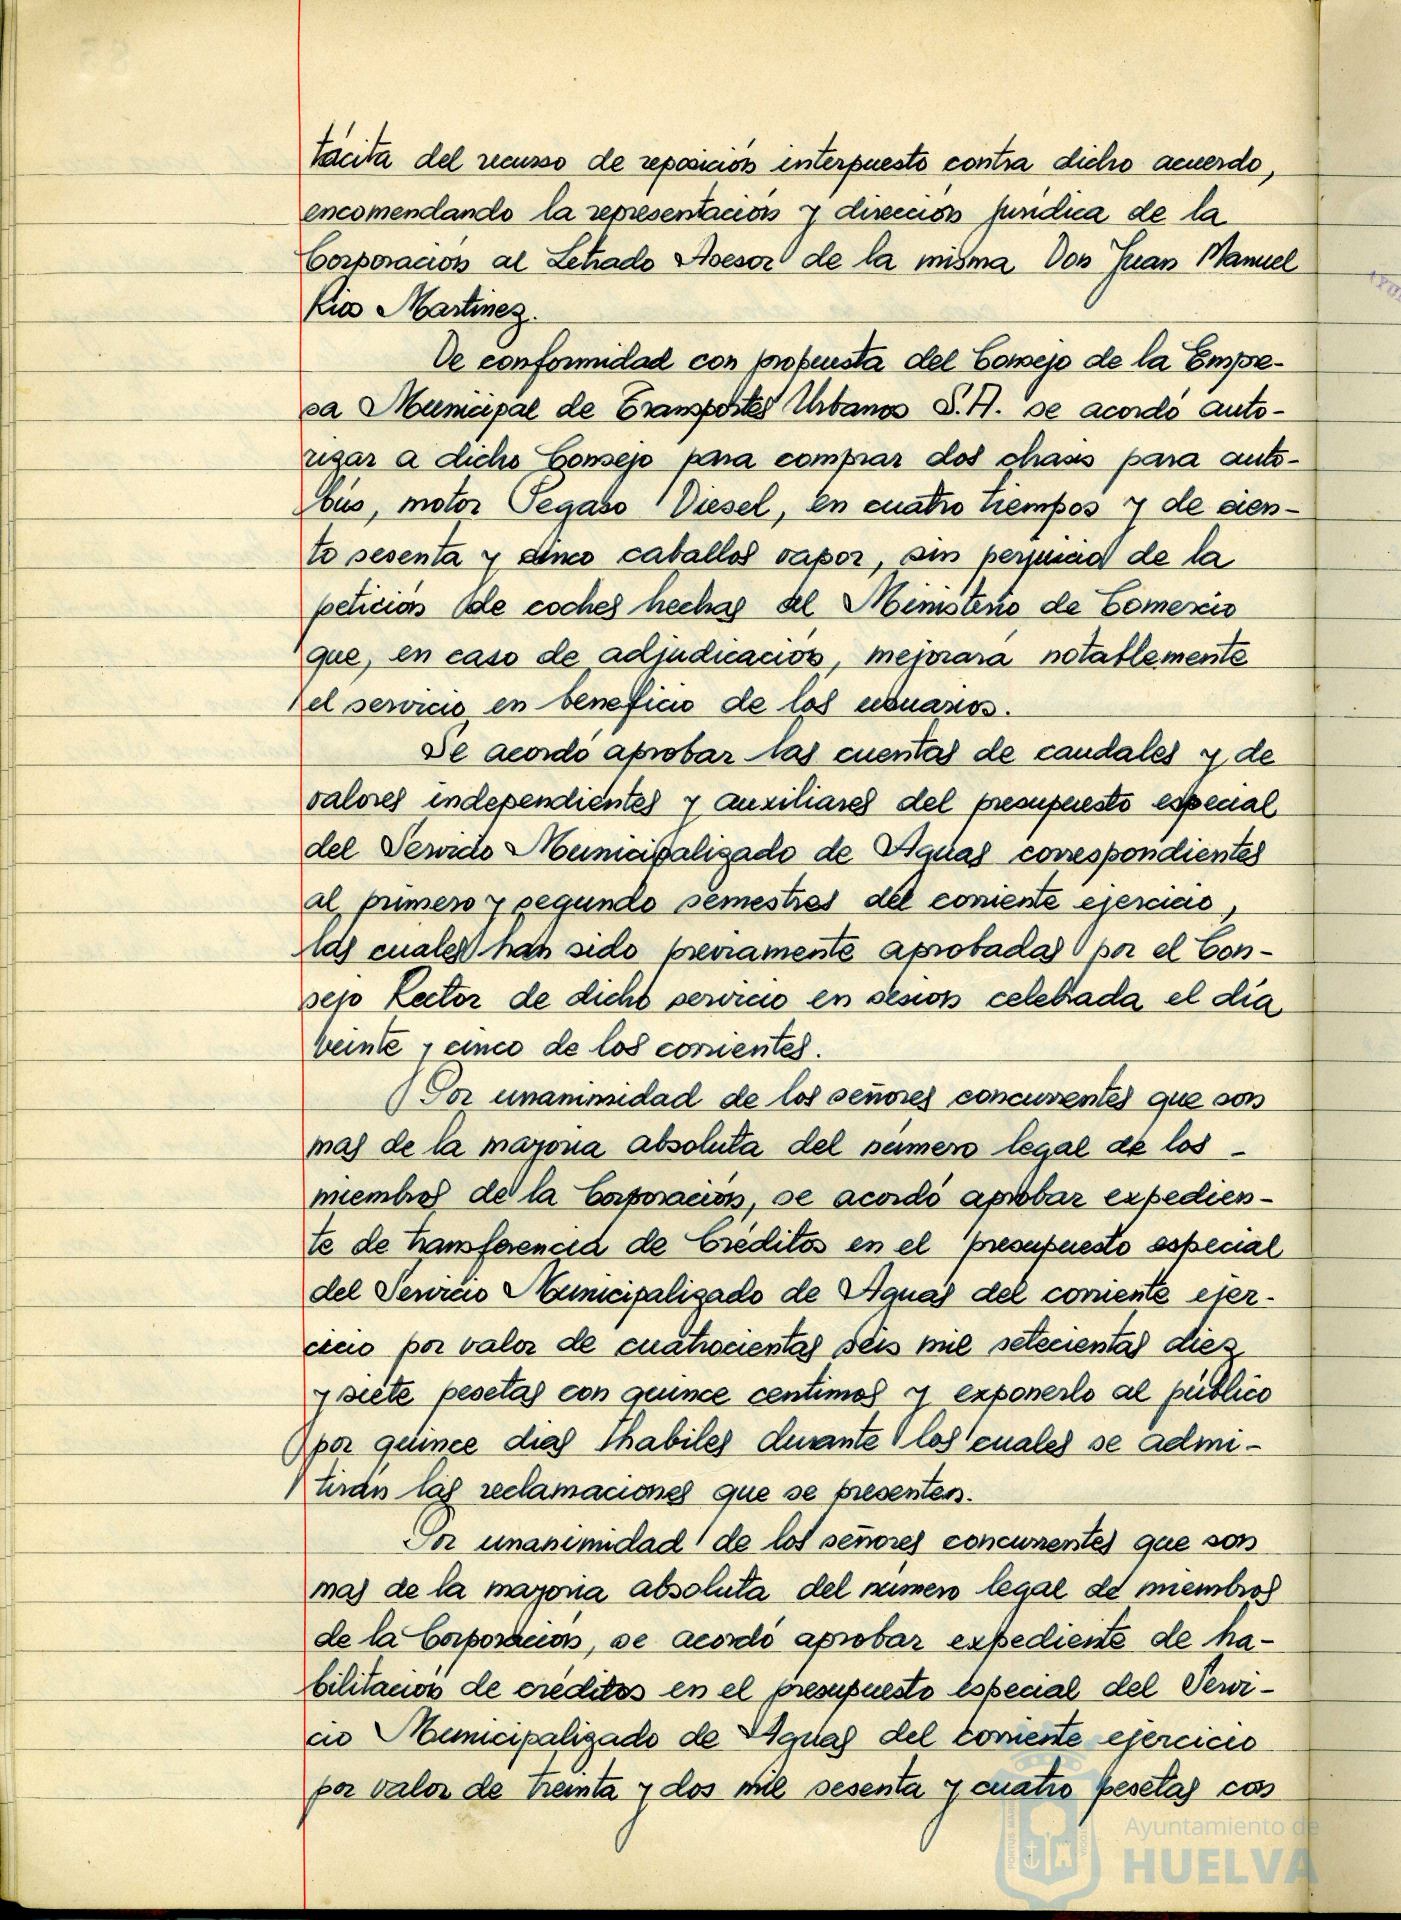 tácita del recurso de reposición interpuesto contra dicho acuerdo,
encomendando la representación y dirección jurídica de la
Corporación al Letrado Asesor de la misma Don Juan Manuel
Rios Martinez.
De conformidad con propuesta del Consejo de la Empre-
sa Municipal de Transportes Urbanos S.A. se acordó auto-
rizar a dicho Consejo para comprar dos chasis para auto-
bús, motor Pegaso Diesel, en cuatro tiempos y de cien-
to sesenta y cinco caballos vapor, sin perjuicio de la
petición de coches hechas al Ministerio de Comercio
que, en caso de adjudicación, mejorará notablemente
el servicio en beneficio de los usuarios.
Se acordó aprobar las cuentas de caudales y de
valores independientes y auxiliares del presupuesto especial
del Servicio Municipalizado de Aguas correspondientes
al primero y segundo semestres del corriente ejercicio,
las cuales han sido previamente aprobadas por el Con-
sejo Rector de dicho servicio en sesion celebrada el día
veinte y cinco de los corrientes.
Por unanimidad de los señores concurrentes que son
mas de la mayoria absoluta del número legal de los -
miembros de la Corporación, se acordó aprobar expedien-
te de transferencia de Créditos en el presupuesto especial
del Servicio Municipalizado de Aguas del corriente ejer-
cicio por valor de cuatrocientas seis mil setecientas diez
y siete pesetas con quince centimos y exponerlo al público
por quince dias habiles durante los cuales se admi-
tirán las reclamaciones que se presenten.
Por unanimidad de los señores concurrentes que son
mas de la mayoria absoluta del número legal de miembros
de la Corporación, se acordó aprobar expediente de ha-
bilitación de créditos en el presupuesto especial del Servi-
cio Municipalizado de Aguas del corriente ejercicio
por valor de treinta y dos mil sesenta y cuatro pesetas con
Ayuntamiento de
HUELVA